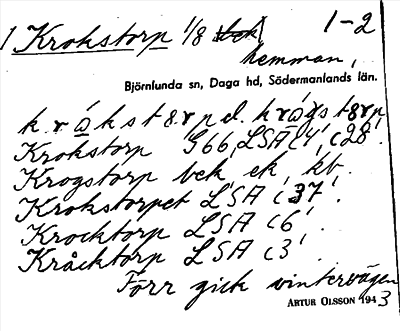 1 Krokstorp 1/8 1-2
hemman,
Björnlunda sn, Daga hd, Södermanlands län.
kråkstɐrp l. krågstɐrp
Krokstorp G66, LSA C4', C28'.
Krogstorp bek ek, kb.
Krokstorpet LSA C37'.
Krocktorp LSA C6'
Kråcktorp LSA C3'
Förr gick vintervägen
ARTUR OLSSON 1943